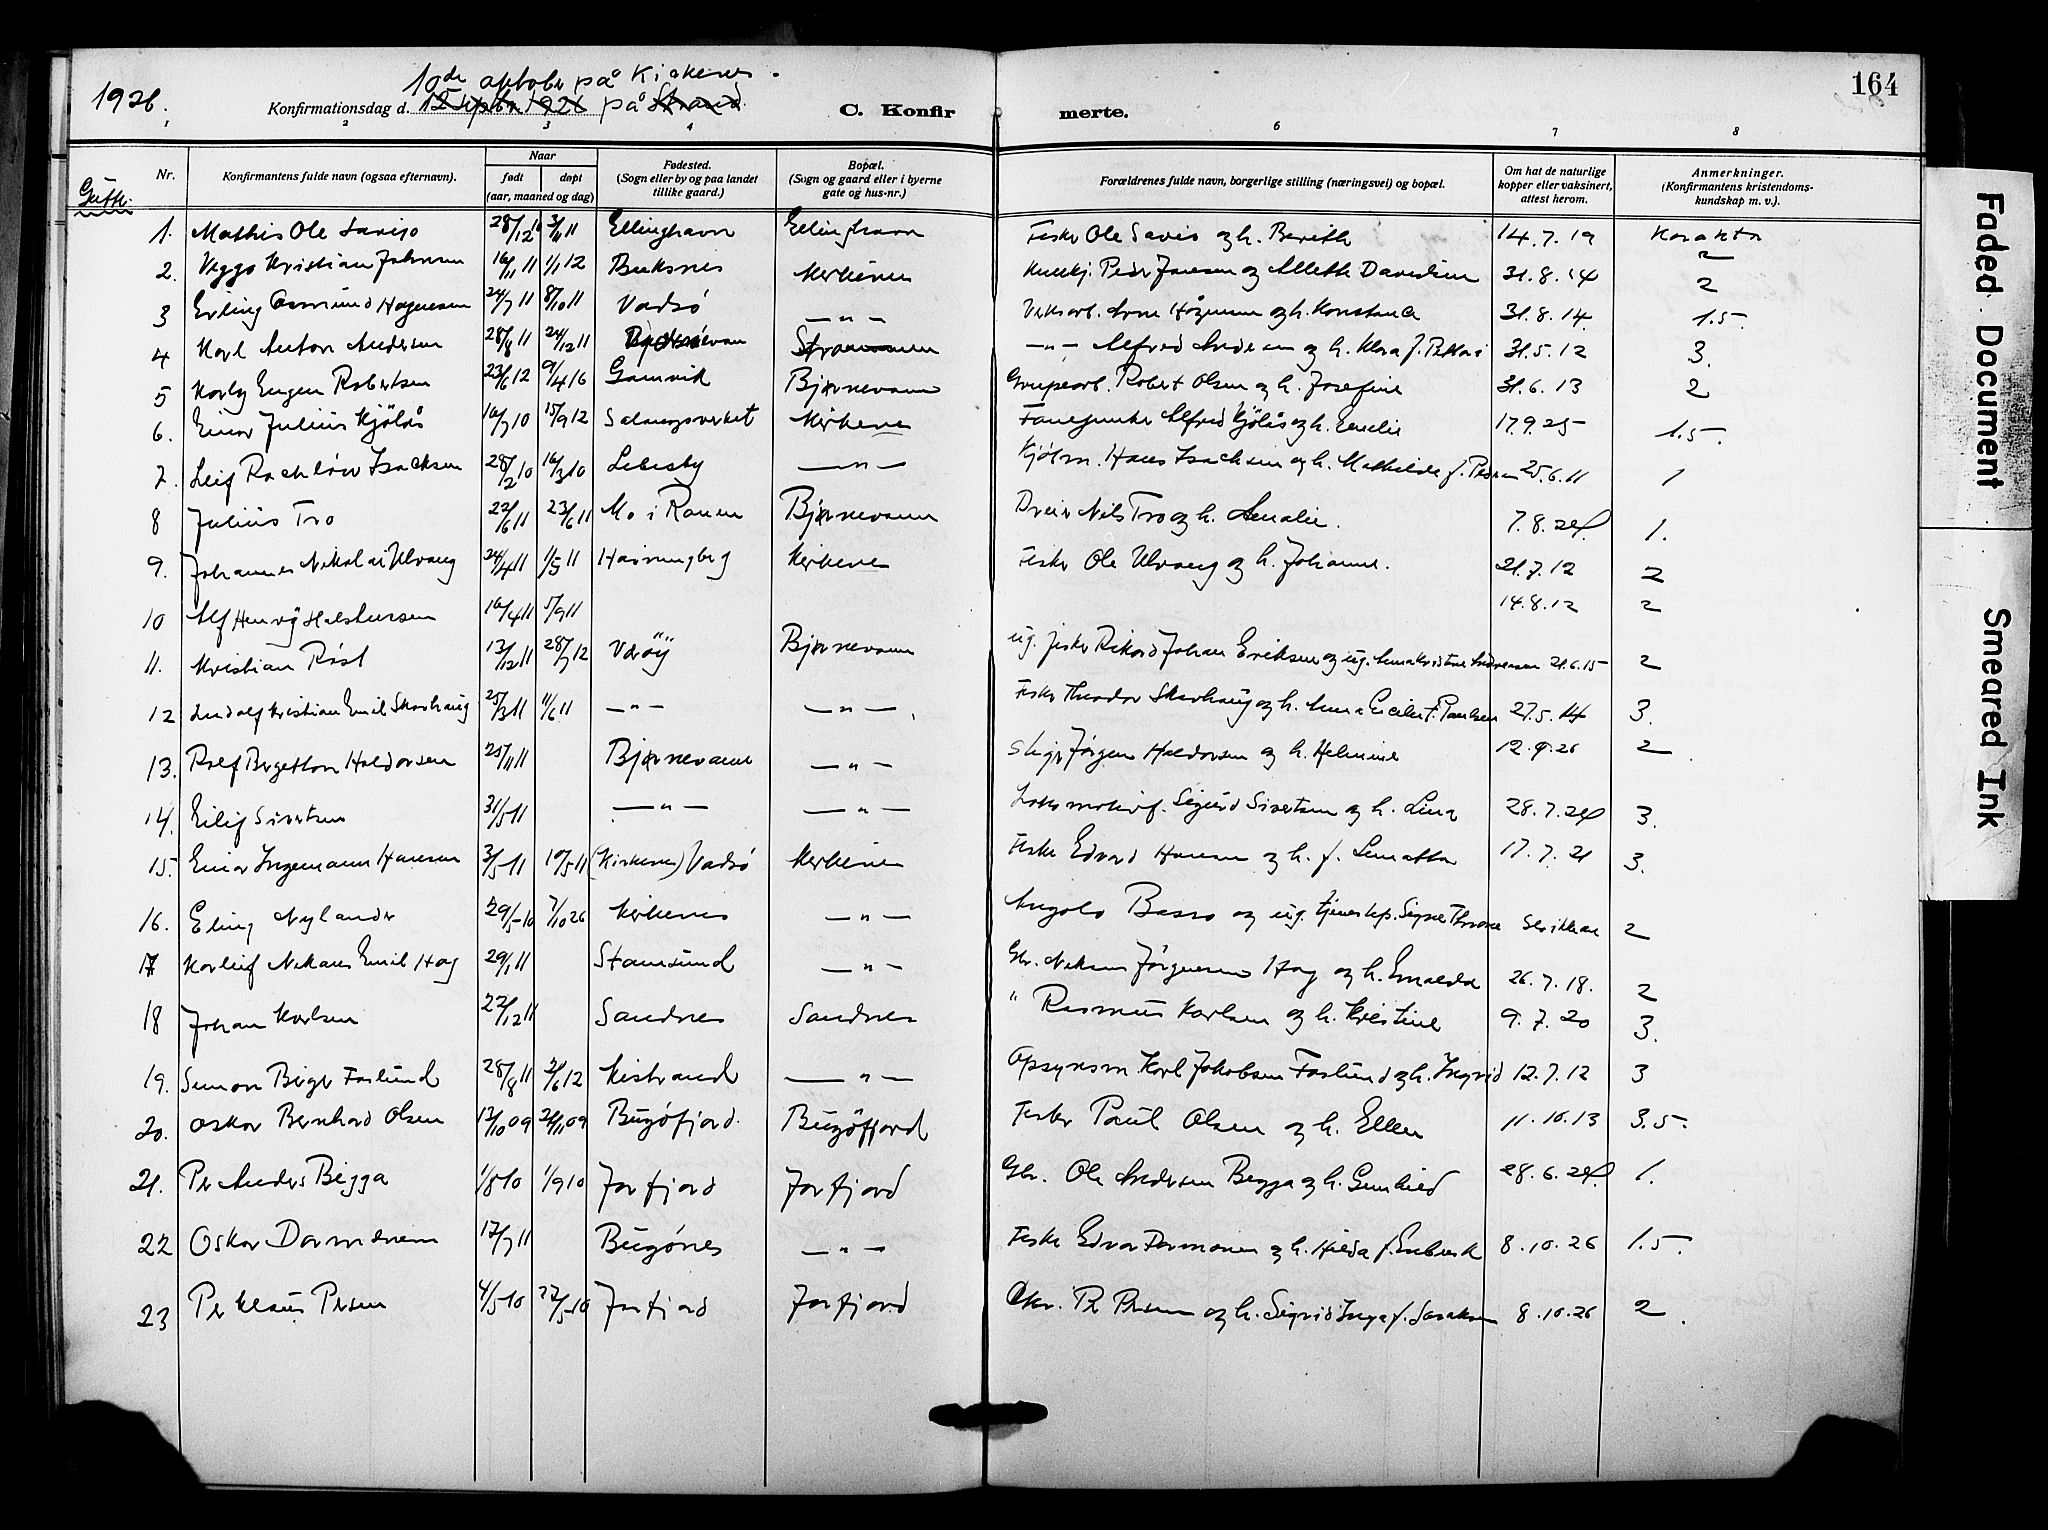 1926.
10de oktober på Kirkenes.
Konfirmationsdag d. 12 septbr 1926 på Strand.
C. Konfirmerte.
164
1 2 3 4 6 7 8
Gutter.
Nr. Konfirmantens fulde navn (ogsaa efternavn). Naar født døpt (aar, maaned og dag) Fødested. (Sogn eller by og paa landet tillike gaard.) Bopæl. (Sogn og gaard eller i byerne gate og hus-nr.) Forældrenes fulde navn, borgerlige stilling (næringsvei) og bopæl. Om hat de naturlige kopper eller vaksinert, attest herom. Anmerkninger. (Konfirmantens kristendoms-kundskap m. v.).
1. Mathis Ole Savio 28/12 10 Ellinghavn Ellinghavn Fisker Ole Savio og h. Berith 14.7.19 Karakter 2
2. Viggo Kristian Johnsen 16/11 11 1/1 12 Buksnes Kirkenes Peder Jansen og Alette Davidsen 31.8.14 2
3 Erling Osmund Hagensen 24/7 11 8/10 11 Vadsø — " — Verksarb. Arne og h. Konstance 31.8.14. 1.5.
4 Karl Anton Andersen 28/8 11 24/12 11 Strømmen — " — Alfred Andersen og h. Klara f. 31.5.12 3.
5 Eugen Robertsen 23/6 12 9/4 16 Gamvik Bjørnevann Grubearb. Robert Olsen og h. Josefine 31.6.13 2
6. Einar Julius Kjølås 16/7 10 15/9 12 Salangsverket Kirkenes Fanejunker Alfred Kjølås og h. Emelie 17.9.25 1.5.
7. Leif Isachsen 28/2 10 16/3 10 Lebesby — " — Hans Isachsen og h. Mathilde f. 25.6.11 1
8 Julius Tro 22/6 11 23/6 11 Mo i Ranen Bjørnevann Nils Tro og h. Amalie. 7.8.24. 1.
9. Johannes Nikolai Ulvang 24/4 11 1/5 11 Havningberg Kirkenes Fisker Ole Ulvang og h. Johanne. 21.7.12 2
10 Alf Henry Halstensen 16/4 11 1/9 11 14.8.12 2
11. Kristian Røst 13/12 11 28/7 12 Værøy Bjørnevann ug. fisker Rikard Johan Eriksen og ug. Anna Kristine Andreassen 21.6.15 2
12 Ludolf Kristian Emil Skarhaug 25/3 11 11/6 11 — " — — " — Fisker Theodor Skarhaug og h. Anna Cecilie f. Paulsen 27.5.14 3.
13. Rolf Bergethon Haldorsen 25/11 11 Bjørnevann — " — Stiger Jørgen Haldorsen og h. Helmine 12.9.26 2
14. Eilif Sivertsen 31/5 11 — " — — " — Lokomotivf. Sigurd Sivertsen og h. Lina 28.7.24 3.
15. Einar Ingemann Hansen 3/5 11 10/5 11 (Kirkenes) Vadsø Kirkenes Fisker Edvard Hansen og h. f. 17.7.21 3.
16. Eling Nylander 29/5 10 7/10 26 Kirkenes — " — Basso og ug. Signe 2
17 Korleif Emil Hag 29/1 11 Stamsund — " — Gbr. Jørgensen Hag og h. 26.7.18. 2
18 Johan Karlsen 22/12 11 Sandnes Sandnes " Rasmus Karlsen og h. Kristine 9.7.20 3.
19. Simon Birger Faslund 28/8 11 2/6 12 Kistrand — " — Opsynsm Karl Jakobsen Faslund og h. Ingrid 12.7.12 3
20. Oskar Bernhard Olsen 13/10 09 21/11 09 Bugøfjord. Bugøfjord Fisker Paul Olsen og h. Ellen 11.10.13 3.5.
21. Per Anders Bigga 1/8 10 1/9 10 Jarfjord Jarfjord Gbr. Ole Andersen Bigga og h. Gunhild 28.6.24. 1.
22 Oskar Dormænen 17/7 11 Bugønes — " — Fisker Edvar Dormænen og h. Hilda f. 8.10.26 1.5.
23 Per Klaus Persen 4/5 10 22/5 10 Jarfjord Jarfjord Per Persen og h. Sigrid Inga f. 8.10.26 2.
Faded Document
Smeared Ink